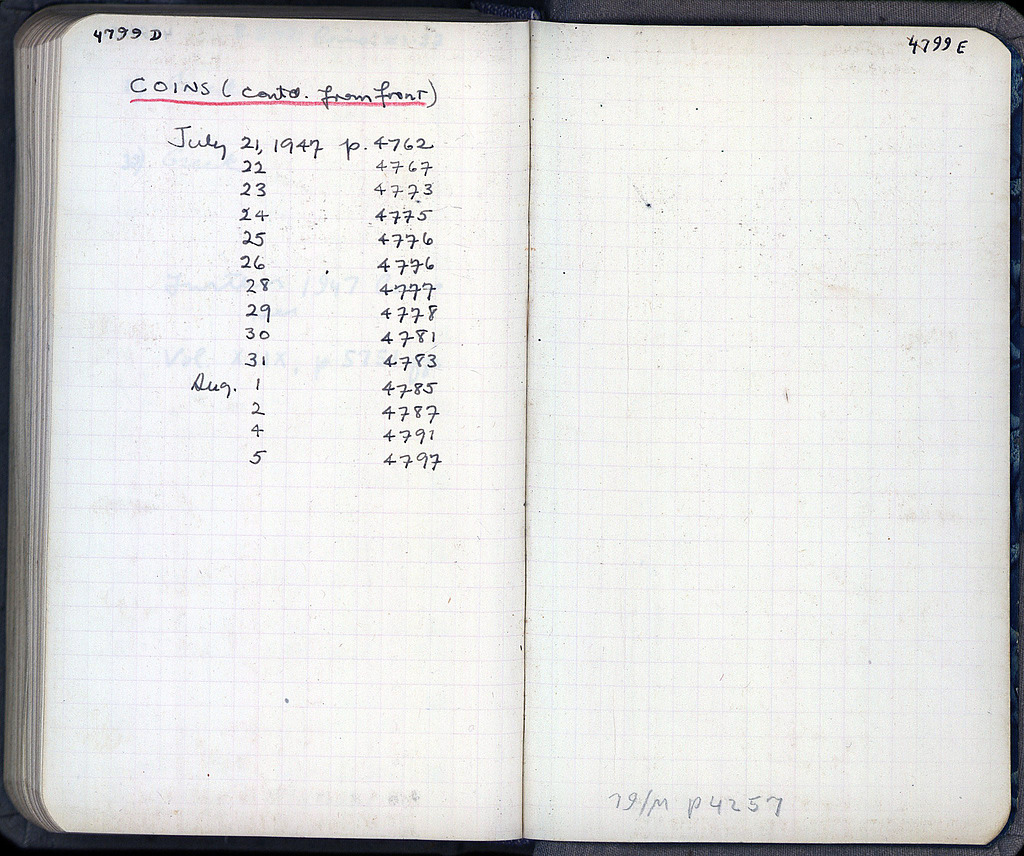 4799 D
COINS (contd. from front)
July 21, 1947 p. 4762
22 4767
23 4773
24 4775
25 4776
26 4776
28 4777
29 4778
30 4781
31 4783
Aug. 1 4785
2 4787
4 4791
5 4797
4799 E
19/M p4257